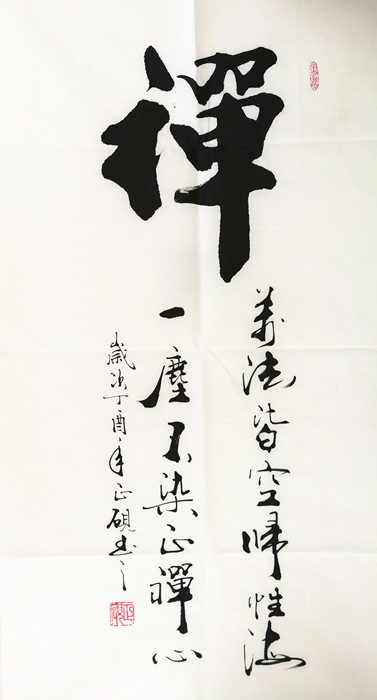 禪
萬法皆空歸性海
一塵不染正禪心
歲次丁酉年正硯書之